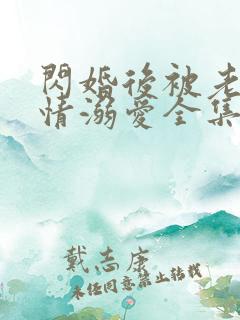 閃婚後被老
情溺愛全集
戴志康
未经同意禁止转载